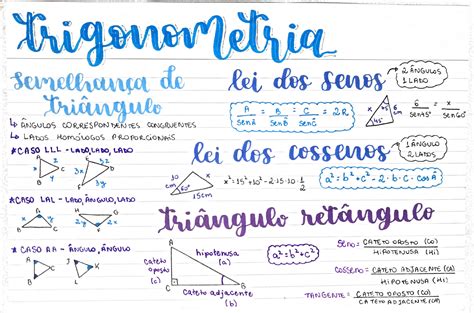 trigonometria
semelhança de
triângulo
↳ ÂNGULOS CORRESPONDENTES CONGRUENTES
↳ LADOS HOMÓLOGOS PROPORCIONAIS
*CASO LLL - LADO, LADO, LADO
A
B
C
*CASO LAL - LADO, ÂNGULO, LADO
A
B
C
G
H
* CASO AA - ÂNGULO, ÂNGULO
A
B
C
J
K
L
lei dos senos
2 ÂNGULOS
1 LADO
A/senÂ = B/senB̂ = C/senĈ = 2R
x
45°
6 cm
6/sen45° = x/sen60°
lei dos cossenos
1 ÂNGULO
2 LADOS
10 cm
60°
15
x
x² = 15² + 10² - 2·15·10·1/2
a² = b² + c² - 2·b·c·cos Â
triângulo retângulo
A
B
C
cateto
oposto
(c)
hipotenusa
(a)
cateto adjacente
(b)
a² = b² + c²
SENO = CATETO OPOSTO (CO)/HIPOTENUSA (HI)
COSSENO = CATETO ADJACENTE (CA)/HIPOTENUSA (HI)
TANGENTE = CATETO OPOSTO (CO)/CATETO ADJACENTE (CA)